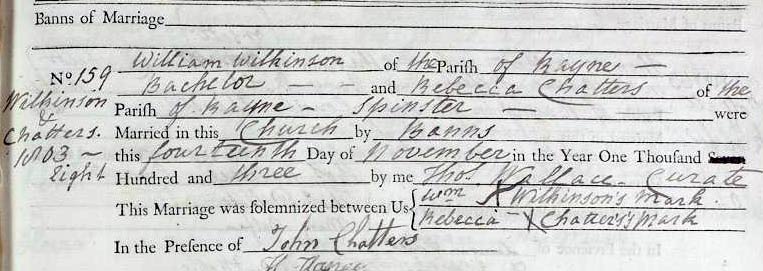 Banns of Marriage
William Wilkinson of the Parish of Rayne
Nº 159 Bachelor and Rebecca Chatters of the
Wilkinson & Chatters. 1803
Parish of Rayne Spinster were
Married in this Church by Banns
this fourteenth Day of November in the Year One Thousand Seven
Eight Hundred and three by me Thos. Wallace Curate
This Marriage was solemnized between Us Wm X Wilkinson's Mark.
Rebecca X Chatters's Mark
In the Presence of John Chatters